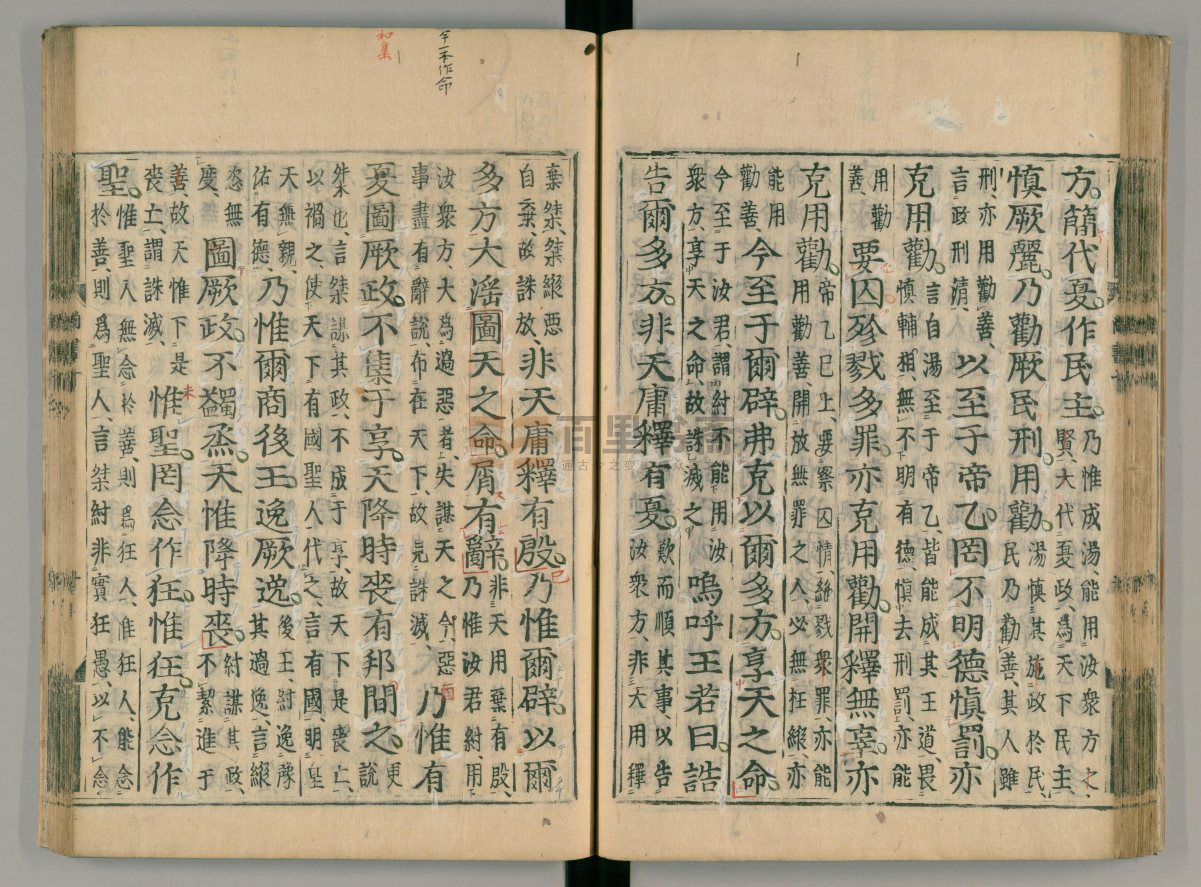 方簡代夏作民主乃惟成湯能用汝衆方之
賢大代夏政爲天下民主
慎厥麗乃勸厥民刑用勸湯慎其施政於民
民乃勸善其人雖
刑亦用勸善
言政刑清以至于帝乙罔不明德慎罰亦
克用勸言自湯至于帝乙皆能成其王道畏
慎輔相無不明有德慎去刑罰亦能
用勸
善要囚殄戮多罪亦克用勸開釋無辜亦
克用勸帝乙已上要察囚情絶戮衆罪亦能
用勸善開放無罪之人必無枉縱亦
能用
勸善今至于爾辟弗克以爾多方享天之命
今至于汝君謂紂不能用汝
衆方享天之命故誅滅之嗚呼王若曰誥
告爾多方非天庸釋有夏歎而順其事以告
汝衆方非大用釋
棄桀桀縱惡
自棄故誅放非天庸釋有殷乃惟爾辟以爾
多方大淫圖天之命屑有辭非天用棄有殷
乃惟汝君紂用
汝衆方大爲過惡者失謀天之今惡
事盡有辭說布在天下故見誅滅乃惟有
夏圖厥政不集于享天降時喪有邦間之更
說
桀也言桀謀其政不成于享故天下是喪亡
以禍之使天下有國聖人代之言有國明皇
天無親
佑有德乃惟爾商後王逸厥逸後王紂逸豫
其過逸言縱
恣無
度圖厥政不蠲烝天惟降時喪紂謀其政
不絜進于
善故天惟下是
喪亡謂誅滅惟聖罔念作狂惟狂克念作
聖惟聖人無念於善則爲狂人惟狂人能念
於善則爲聖人言桀紂非實狂愚以不念
今一本作命
和集
通古今之變